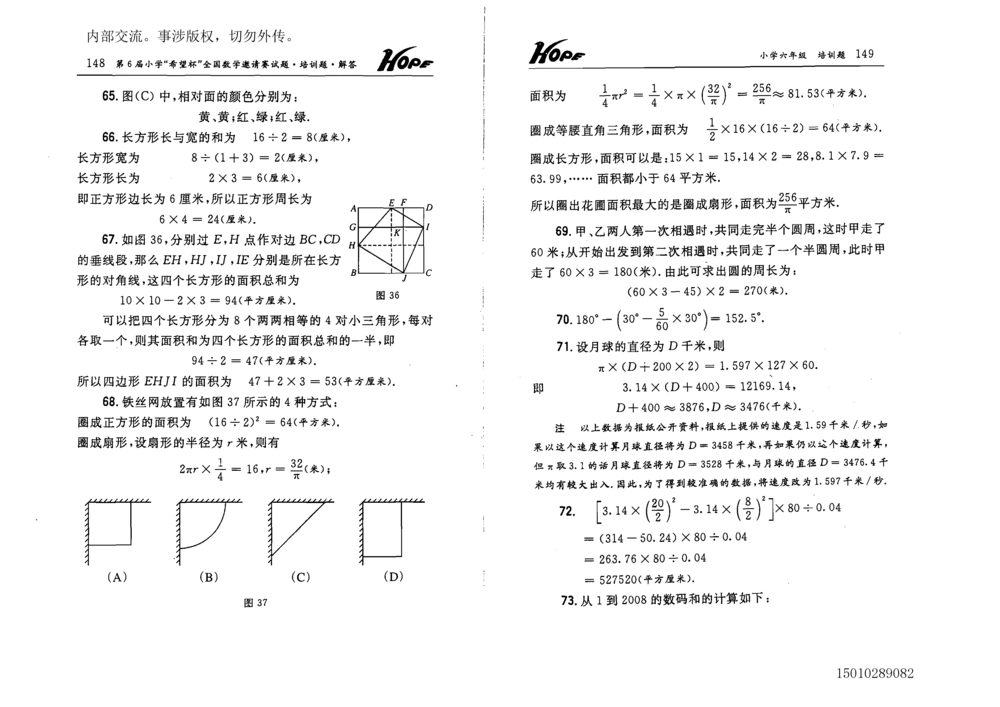 内部交流。事涉版权，切勿外传。
148 第6届小学“希望杯”全国数学邀请赛试题·培训题·解答 HOPE
65. 图(C)中,相对面的颜色分别为:
黄、黄;红、绿;红、绿.
66. 长方形长与宽的和为 16÷2=8(厘米),
长方形宽为 8÷(1+3)=2(厘米),
长方形长为 2×3=6(厘米),
即正方形边长为6厘米,所以正方形周长为
6×4=24(厘米).
67. 如图36,分别过E,H点作对边BC,CD
的垂线段,那么EH,HJ,IJ,IE分别是所在长方
形的对角线,这四个长方形的面积总和为
10×10-2×3=94(平方厘米).
A E F D
G K I
H
B J C
图36
可以把四个长方形分为8个两两相等的4对小三角形,每对
各取一个,则其面积和为四个长方形的面积总和的一半,即
94÷2=47(平方厘米).
所以四边形EHJI的面积为 47+2×3=53(平方厘米).
68. 铁丝网放置有如图37所示的4种方式:
圈成正方形的面积为 (16÷2)²=64(平方米).
圈成扇形,设扇形的半径为r米,则有
2πr×1/4=16,r=32/π(米);
(A) (B) (C) (D)
图37
HOPE 小学六年级 培训题 149
面积为 1/4πr²=1/4×π×(32/π)²=256/π≈81.53(平方米).
圈成等腰直角三角形,面积为 1/2×16×(16÷2)=64(平方米).
圈成长方形,面积可以是:15×1=15,14×2=28,8.1×7.9=
63.99,……面积都小于64平方米.
所以圈出花圃面积最大的是圈成扇形,面积为256/π平方米.
69. 甲、乙两人第一次相遇时,共同走完半个圆周,这时甲走了
60米;从开始出发到第二次相遇时,共同走了一个半圆周,此时甲
走了60×3=180(米).由此可求出圆的周长为:
(60×3-45)×2=270(米).
70. 180°-(30°-5/60×30°)=152.5°.
71. 设月球的直径为D千米,则
π×(D+200×2)=1.597×127×60.
即 3.14×(D+400)=12169.14,
D+400≈3876,D≈3476(千米).
注 以上数据为报纸公开资料,报纸上提供的速度是1.59千米/秒,如
果以这个速度计算月球直径将为D=3458千米,再如果仍以这个速度计算,
但π取3.1的话月球直径将为D=3528千米,与月球的直径D=3476.4千
米均有较大出入.因此,为了得到较准确的数据,将速度改为1.597千米/秒.
72. [3.14×(20/2)²-3.14×(8/2)²]×80÷0.04
=(314-50.24)×80÷0.04
=263.76×80÷0.04
=527520(平方厘米).
73. 从1到2008的数码和的计算如下:
15010289082